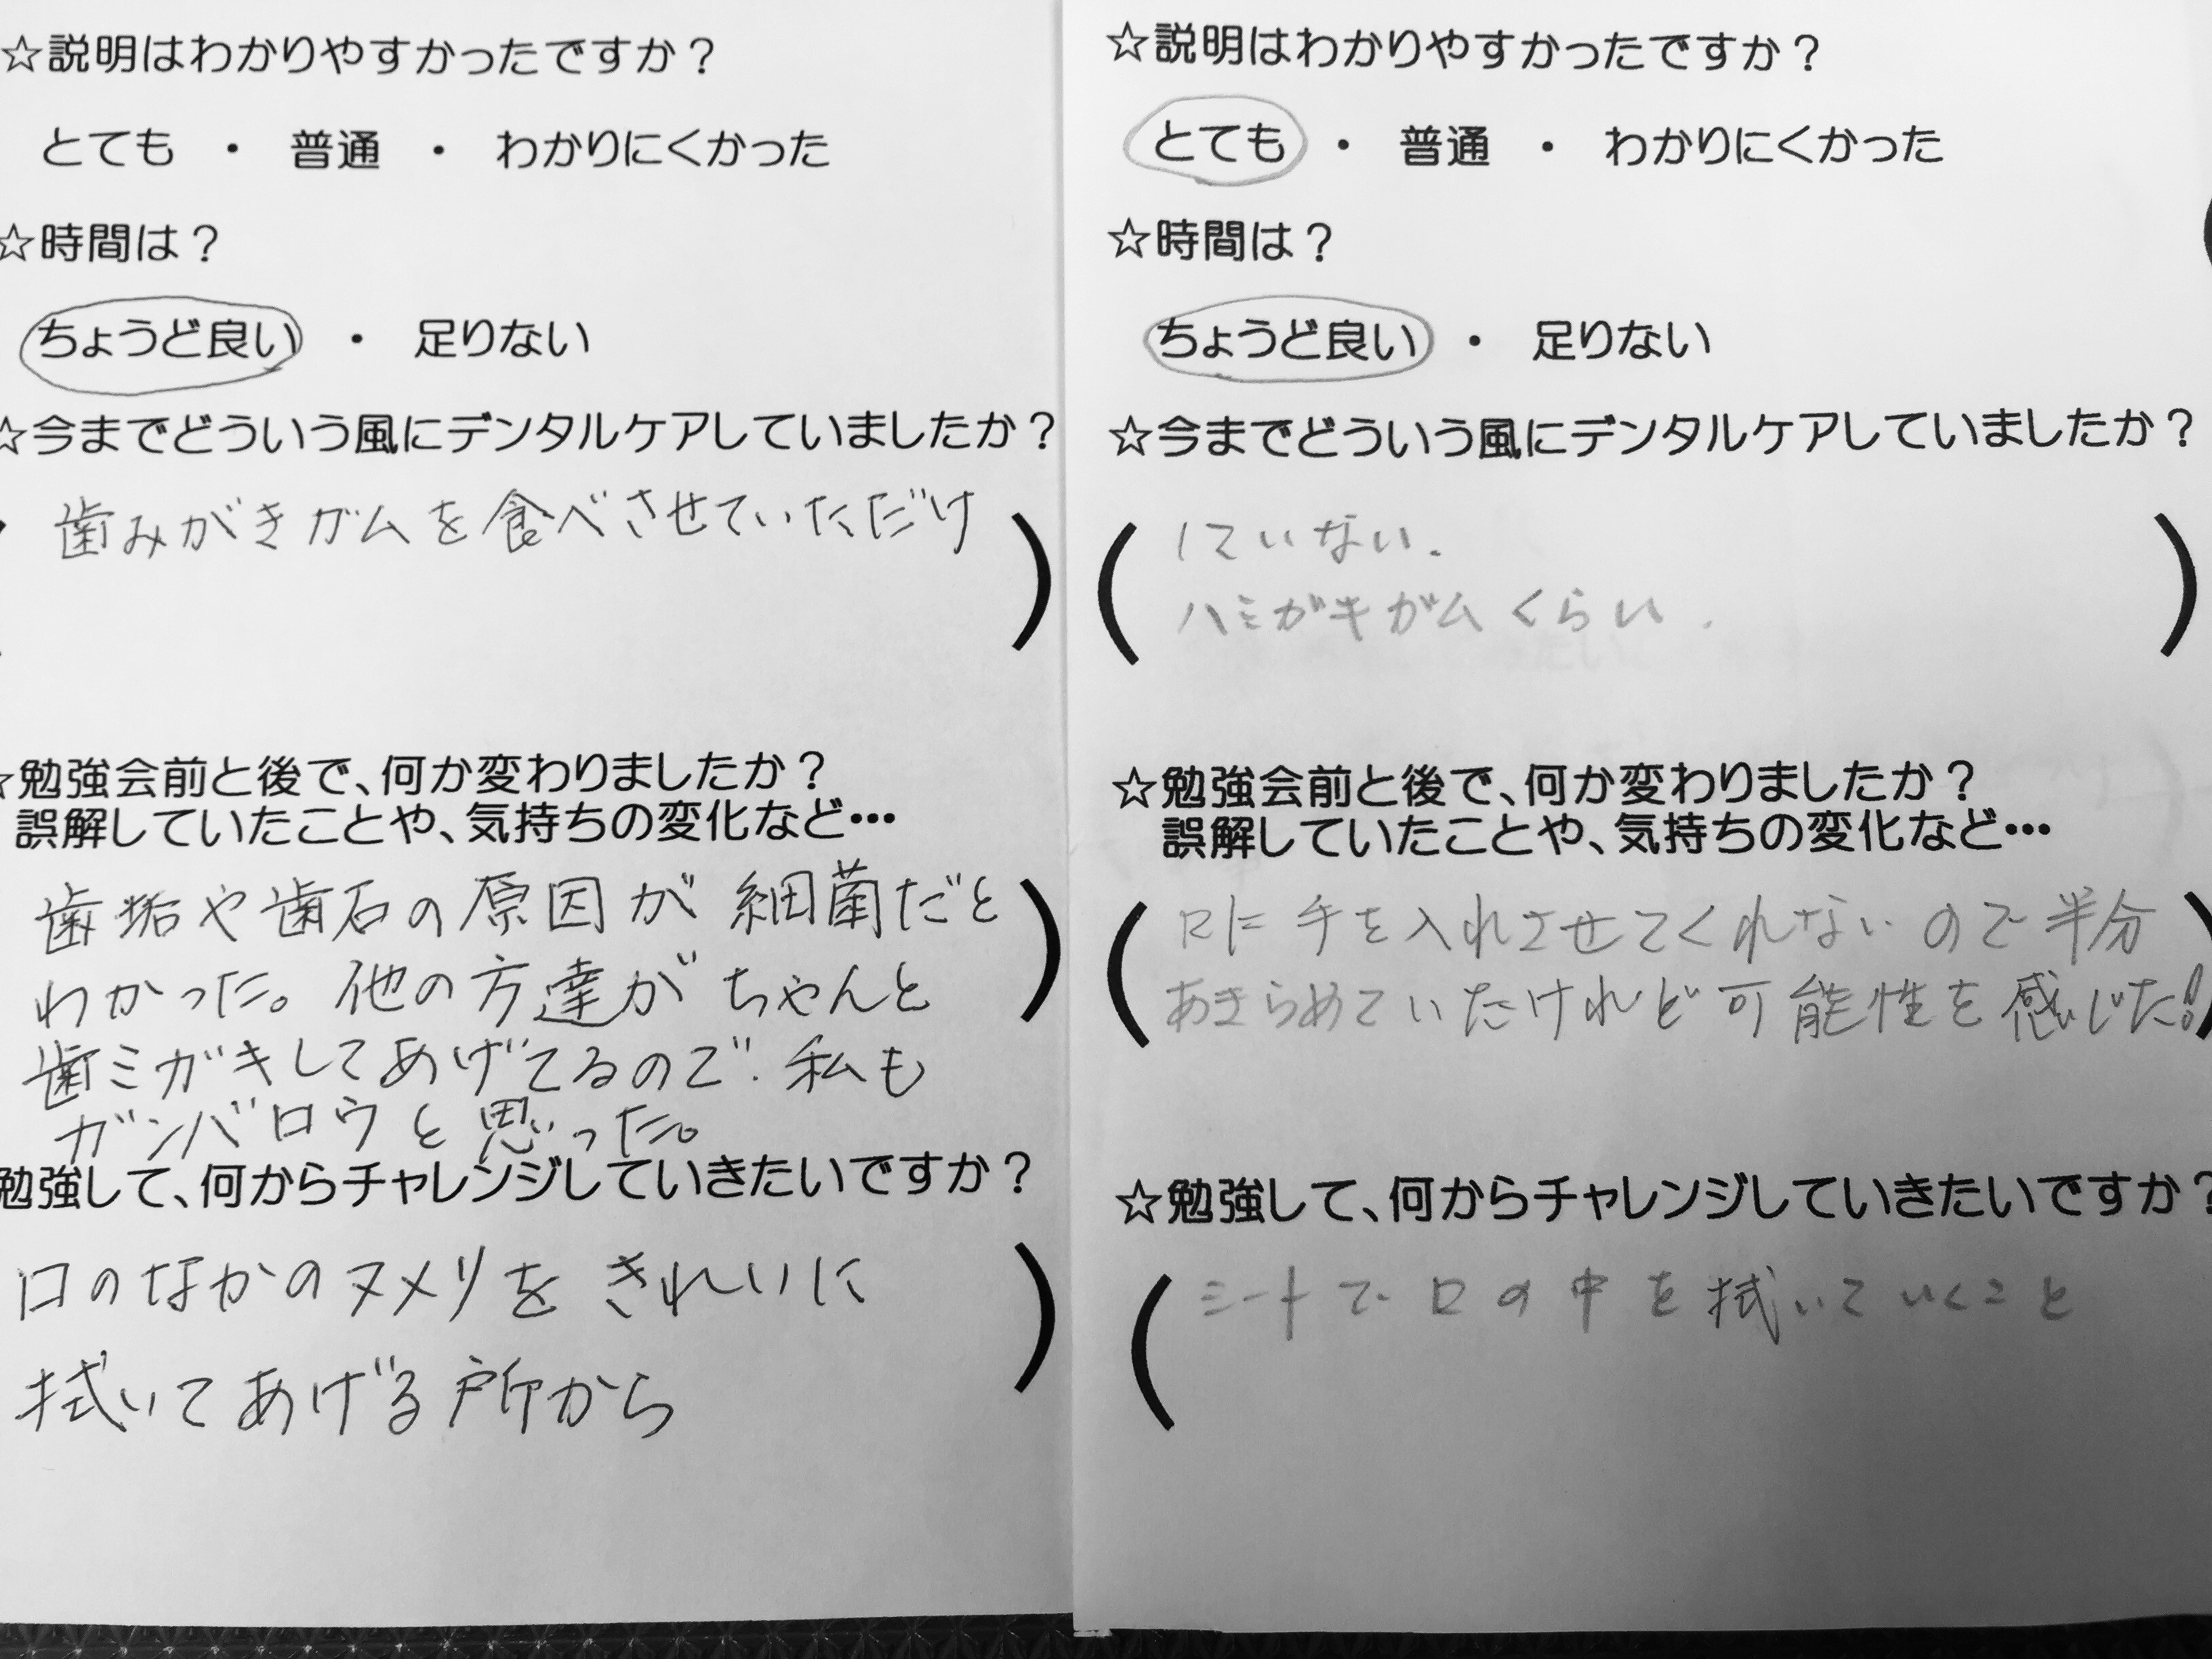 ☆説明はわかりやすかったですか？
とても ・ 普通 ・ わかりにくかった
☆時間は？
ちょうど良い ・ 足りない
☆今までどういう風にデンタルケアしていましたか？
歯みがきガムを食べさせていただけ )
☆勉強会前と後で、何か変わりましたか？
誤解していたことや、気持ちの変化など…
歯垢や歯石の原因が細菌だと )
わかった。他の方達がちゃんと
歯ミガキしてあげてるので、私も
ガンバロウと思った。
勉強して、何からチャレンジしていきたいですか？
口のなかのヌメリをきれいに )
拭いてあげる所から
☆説明はわかりやすかったですか？
とても ・ 普通 ・ わかりにくかった
☆時間は？
ちょうど良い ・ 足りない
☆今までどういう風にデンタルケアしていましたか？
( していない. )
ハミガキガムくらい.
☆勉強会前と後で、何か変わりましたか？
誤解していたことや、気持ちの変化など…
( 口に手を入れさせてくれないので半分 )
あきらめていたけれど可能性を感じた!!
☆勉強して、何からチャレンジしていきたいですか？
( シートで口の中を拭いていくこと